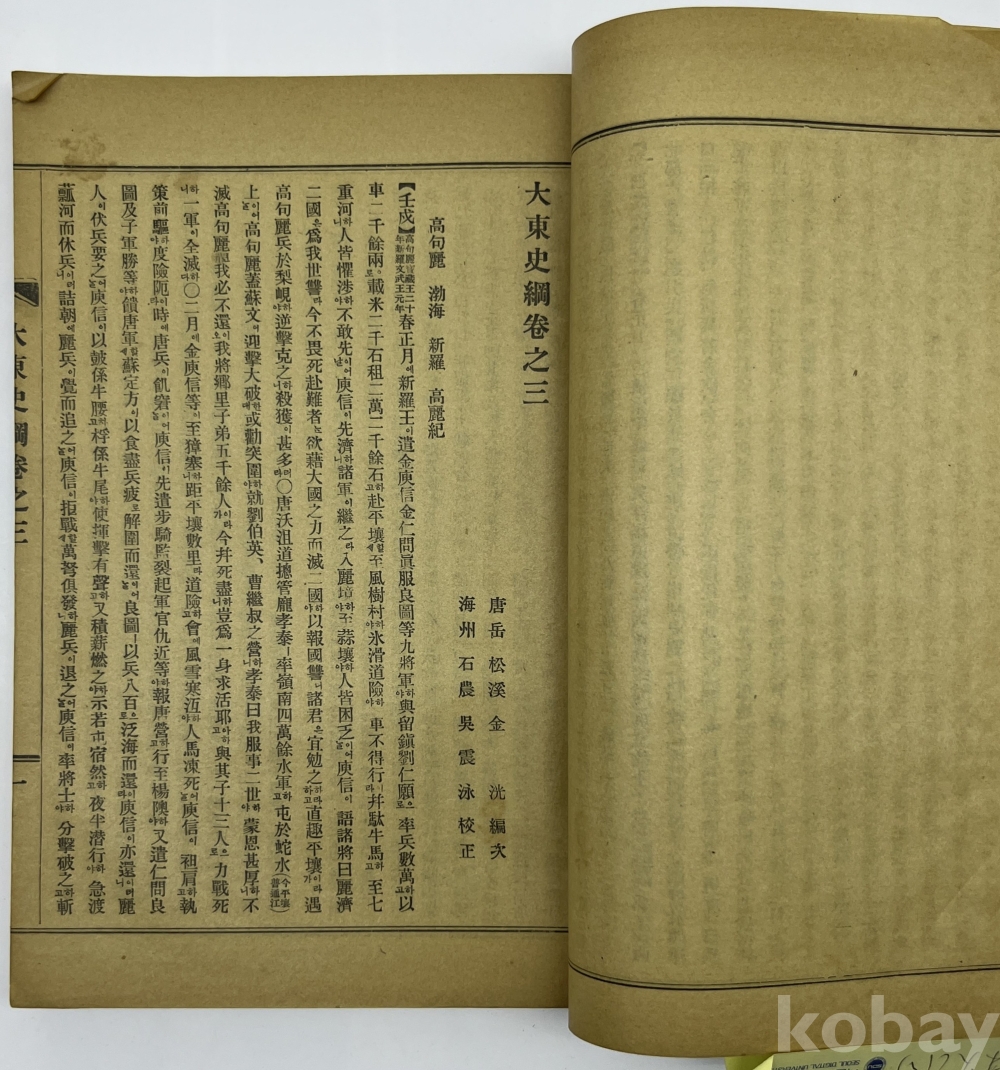 大東史綱卷之三
唐岳 松溪 金 洸 編次
海州 石農 吳震泳 校正
高句麗 渤海 新羅 高麗紀
【壬戌】高句麗寶藏王二十年新羅文武王元年春正月에新羅王이遣金庾信金仁問眞服良圖等九將軍하야與留鎭劉仁願으로率兵數萬하고以
車二千餘兩로載米二千石租二萬二千餘石하고赴平壤할세至風樹村하야氷滑道險하야車不得行이라幷馱牛馬하고至七
重河하니人皆懼涉하야不敢先이어날庾信이先濟하니諸軍이繼之라入麗境하야至蒜壤하야人皆困乏이어늘庾信이語諸將曰麗濟
二國은爲我世讐라今不畏死赴難者는欲藉大國之力而滅二國하야以報國讐니諸君은宜勉之하라하고直趣平壤이라가遇
高句麗兵於梨峴하야逆擊克之하니殺獲이甚多러라○唐沃沮道摠管龐孝泰ㅣ率嶺南四萬餘水軍하고屯於蛇水(今平壤普通江)
上이어늘高句麗蓋蘇文이迎擊大破한대或勸突圍하야就劉伯英、曹繼叔之營하니孝泰曰我服事二世하야蒙恩甚厚하니不
滅高句麗면我必不還이오我將鄕里子弟五千餘人이라가今幷死盡하니豈爲一身求活耶아하고與其子十三人으로力戰死
하니一軍이全滅하다○二月에金庾信等이至獐塞하니距平壤數里라道險하고會에風雪寒沍하야人馬凍死어늘庾信이袒肩하고執
策前驅하야度險阨이라時에唐兵이飢窘이어늘庾信이先遣步騎監裂起軍官仇近等하야報唐營하고行至楊隩하야又遣仁問良
圖及子軍勝等하야饋唐軍할세蘇定方이以食盡兵疲로解圍而還이어늘良圖ㅣ以兵八百으로泛海而還이라庾信이亦還이러니麗
人이伏兵要之어늘庾信이以鼓係牛腰하고桴係牛尾하야使揮擊有聲하고又積薪燃之하야示若屯宿然하고夜半潛行하야急渡
瓢河而休兵이러니詰朝에麗兵이覺而追之어늘庾信이拒戰할세萬弩俱發하니麗兵이退之어늘庾信이率將士하야分擊破之하고斬
大東史綱卷之三
一
kobay